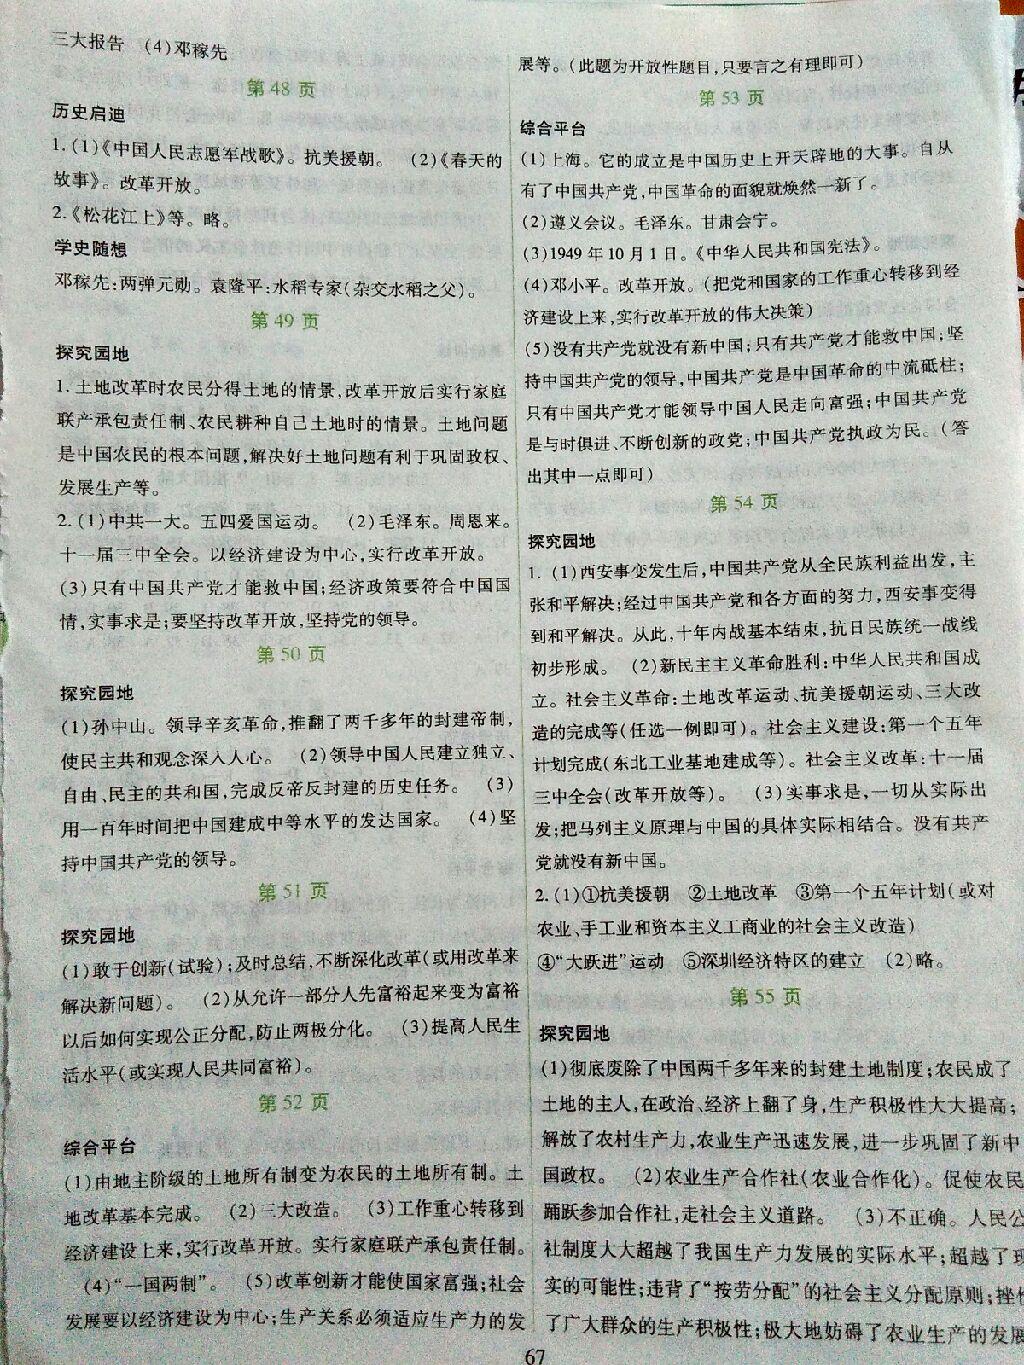 三大报告　(4)邓稼先
第48页
历史启迪
1.(1)《中国人民志愿军战歌》。抗美援朝。　(2)《春天的
故事》。改革开放。
2.《松花江上》等。略。
学史随想
邓稼先:两弹元勋。袁隆平:水稻专家(杂交水稻之父)。
第49页
探究园地
1.土地改革时农民分得土地的情景,改革开放后实行家庭
联产承包责任制、农民耕种自己土地时的情景。土地问题
是中国农民的根本问题,解决好土地问题有利于巩固政权、
发展生产等。
2.(1)中共一大。五四爱国运动。　(2)毛泽东。周恩来。
十一届三中全会。以经济建设为中心,实行改革开放。
(3)只有中国共产党才能救中国;经济政策要符合中国国
情,实事求是;要坚持改革开放,坚持党的领导。
第50页
探究园地
(1)孙中山。领导辛亥革命,推翻了两千多年的封建帝制,
使民主共和观念深入人心。　(2)领导中国人民建立独立、
自由、民主的共和国,完成反帝反封建的历史任务。　(3)
用一百年时间把中国建成中等水平的发达国家。　(4)坚
持中国共产党的领导。
第51页
探究园地
(1)敢于创新(试验);及时总结,不断深化改革(或用改革来
解决新问题)。　(2)从允许一部分人先富裕起来变为富裕
以后如何实现公正分配,防止两极分化。　(3)提高人民生
活水平(或实现人民共同富裕)。
第52页
综合平台
(1)由地主阶级的土地所有制变为农民的土地所有制。土
地改革基本完成。　(2)三大改造。　(3)工作重心转移到
经济建设上来,实行改革开放。实行家庭联产承包责任制。
(4)“一国两制”。　(5)改革创新才能使国家富强;社会
发展要以经济建设为中心;生产关系必须适应生产力的发
展等。(此题为开放性题目,只要言之有理即可)
第53页
综合平台
(1)上海。它的成立是中国历史上开天辟地的大事。自从
有了中国共产党,中国革命的面貌就焕然一新了。
(2)遵义会议。毛泽东。甘肃会宁。
(3)1949年10月1日。《中华人民共和国宪法》。
(4)邓小平。改革开放。(把党和国家的工作重心转移到经
济建设上来,实行改革开放的伟大决策)
(5)没有共产党就没有新中国;只有共产党才能救中国;坚
持中国共产党的领导,中国共产党是中国革命的中流砥柱;
只有中国共产党才能领导中国人民走向富强;中国共产党
是与时俱进、不断创新的政党;中国共产党执政为民。(答
出其中一点即可)
第54页
探究园地
1.(1)西安事变发生后,中国共产党从全民族利益出发,主
张和平解决;经过中国共产党和各方面的努力,西安事变得
到和平解决。从此,十年内战基本结束,抗日民族统一战线
初步形成。　(2)新民主主义革命胜利:中华人民共和国成
立。社会主义革命:土地改革运动、抗美援朝运动、三大改
造的完成等(任选一例即可)。社会主义建设:第一个五年
计划完成(东北工业基地建成等)。社会主义改革:十一届
三中全会(改革开放等)。　(3)实事求是,一切从实际出
发;把马列主义原理与中国的具体实际相结合。没有共产
党就没有新中国。
2.(1)①抗美援朝　②土地改革　③第一个五年计划(或对
农业、手工业和资本主义工商业的社会主义改造)
④“大跃进”运动　⑤深圳经济特区的建立　(2)略。
第55页
探究园地
(1)彻底废除了中国两千多年来的封建土地制度;农民成了
土地的主人,在政治、经济上翻了身,生产积极性大大提高;
解放了农村生产力,农业生产迅速发展,进一步巩固了新中
国政权。　(2)农业生产合作社(农业合作化)。促使农民
踊跃参加合作社,走社会主义道路。　(3)不正确。人民公
社制度大大超越了我国生产力发展的实际水平;超越了现
实的可能性;违背了“按劳分配”的社会主义分配原则;挫伤
了广大群众的生产积极性;极大地妨碍了农业生产的发展
67